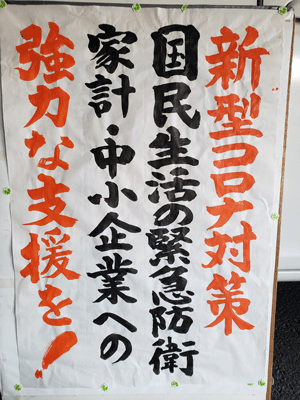 新型コロナ対策
国民生活の緊急防衛
家計・中小企業への
強力な支援を!